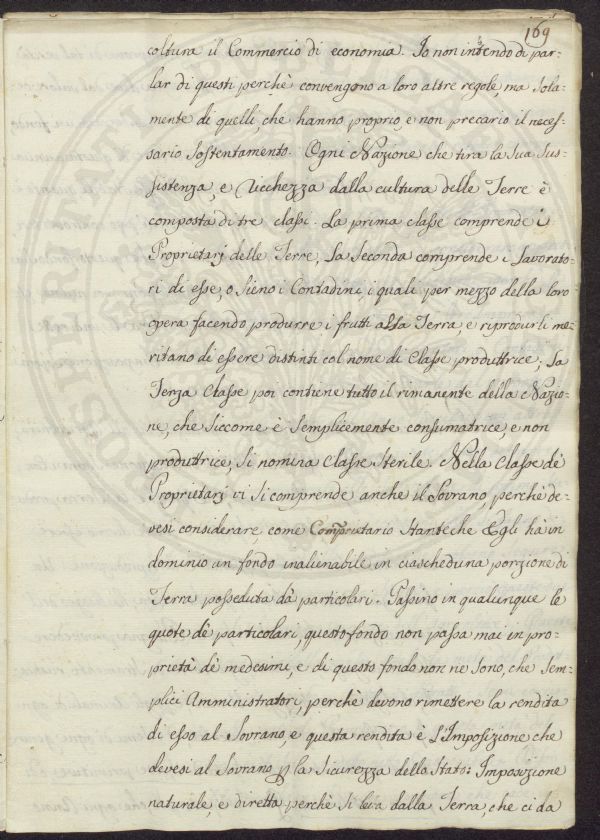 169
coltura il Commercio di economia. Io non intendo di par-
lar di questi perchè convengono a loro altre regole, ma sola-
mente di quelli, che hanno proprio, e non precario il neces-
sario sostentamento. Ogni Nazione che tira la sua sus-
sistenza, e Ricchezza dalla cultura delle Terre è
composta di tre classi. La prima classe comprende i
Proprietarj delle Terre, la seconda comprende i lavorato-
ri di esse, o sieno i Contadini, i quali per mezzo della loro
opera facendo produrre i frutti alla Terra, e riprodurli me-
ritano di essere distinti col nome di Classe produttrice; la
Terza Classe poi contiene tutto il rimanente della Nazio-
ne, che siccome è semplicemente consumatrice, e non
produttrice, si nomina Classe sterile. Nella Classe dè
Proprietarj vi si comprende anche il Sovrano, perchè de-
vesi considerare come Comproprietario stanteche Egli hà in
dominio un fondo inalienabile in ciascheduna porzione di
Terra posseduta dà particolari. Passino in qualunque le
quote dè particolari, questo fondo non passa mai in pro-
prietà dè medesimi, e di questo fondo non ne sono, che sem-
plici Amministratori, perchè devono rimettere la rendita
di esso al Sovrano, e questa rendita è l'Imposizione che
devesi al Sovrano ꝑ la sicurezza dello Stato: Imposizione
naturale, e diretta perchè si leva dalla Terra, che ci da
PROSPERITATI